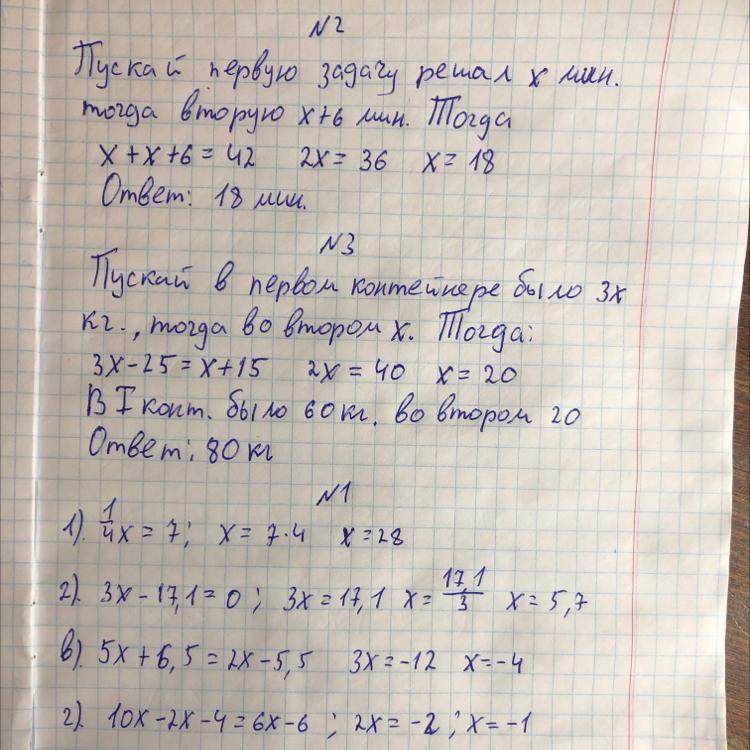 №2
Пускай первую задачу решал x мин.
тогда вторую x+6 мин. Тогда
x+x+6=42 2x=36 x=18
Ответ: 18 мин.
№3
Пускай в первом контейнере было 3x
кг., тогда во втором x. Тогда:
3x-25=x+15 2x=40 x=20
В I конт. было 60кг. во втором 20
Ответ: 80 кг
№1
1). 1/4x=7; x=7·4 x=28
2). 3x-17,1=0; 3x=17,1 x=17,1/3 x=5,7
в). 5x+6,5=2x-5,5 3x=-12 x=-4
г). 10x-2x-4=6x-6; 2x=-2; x=-1